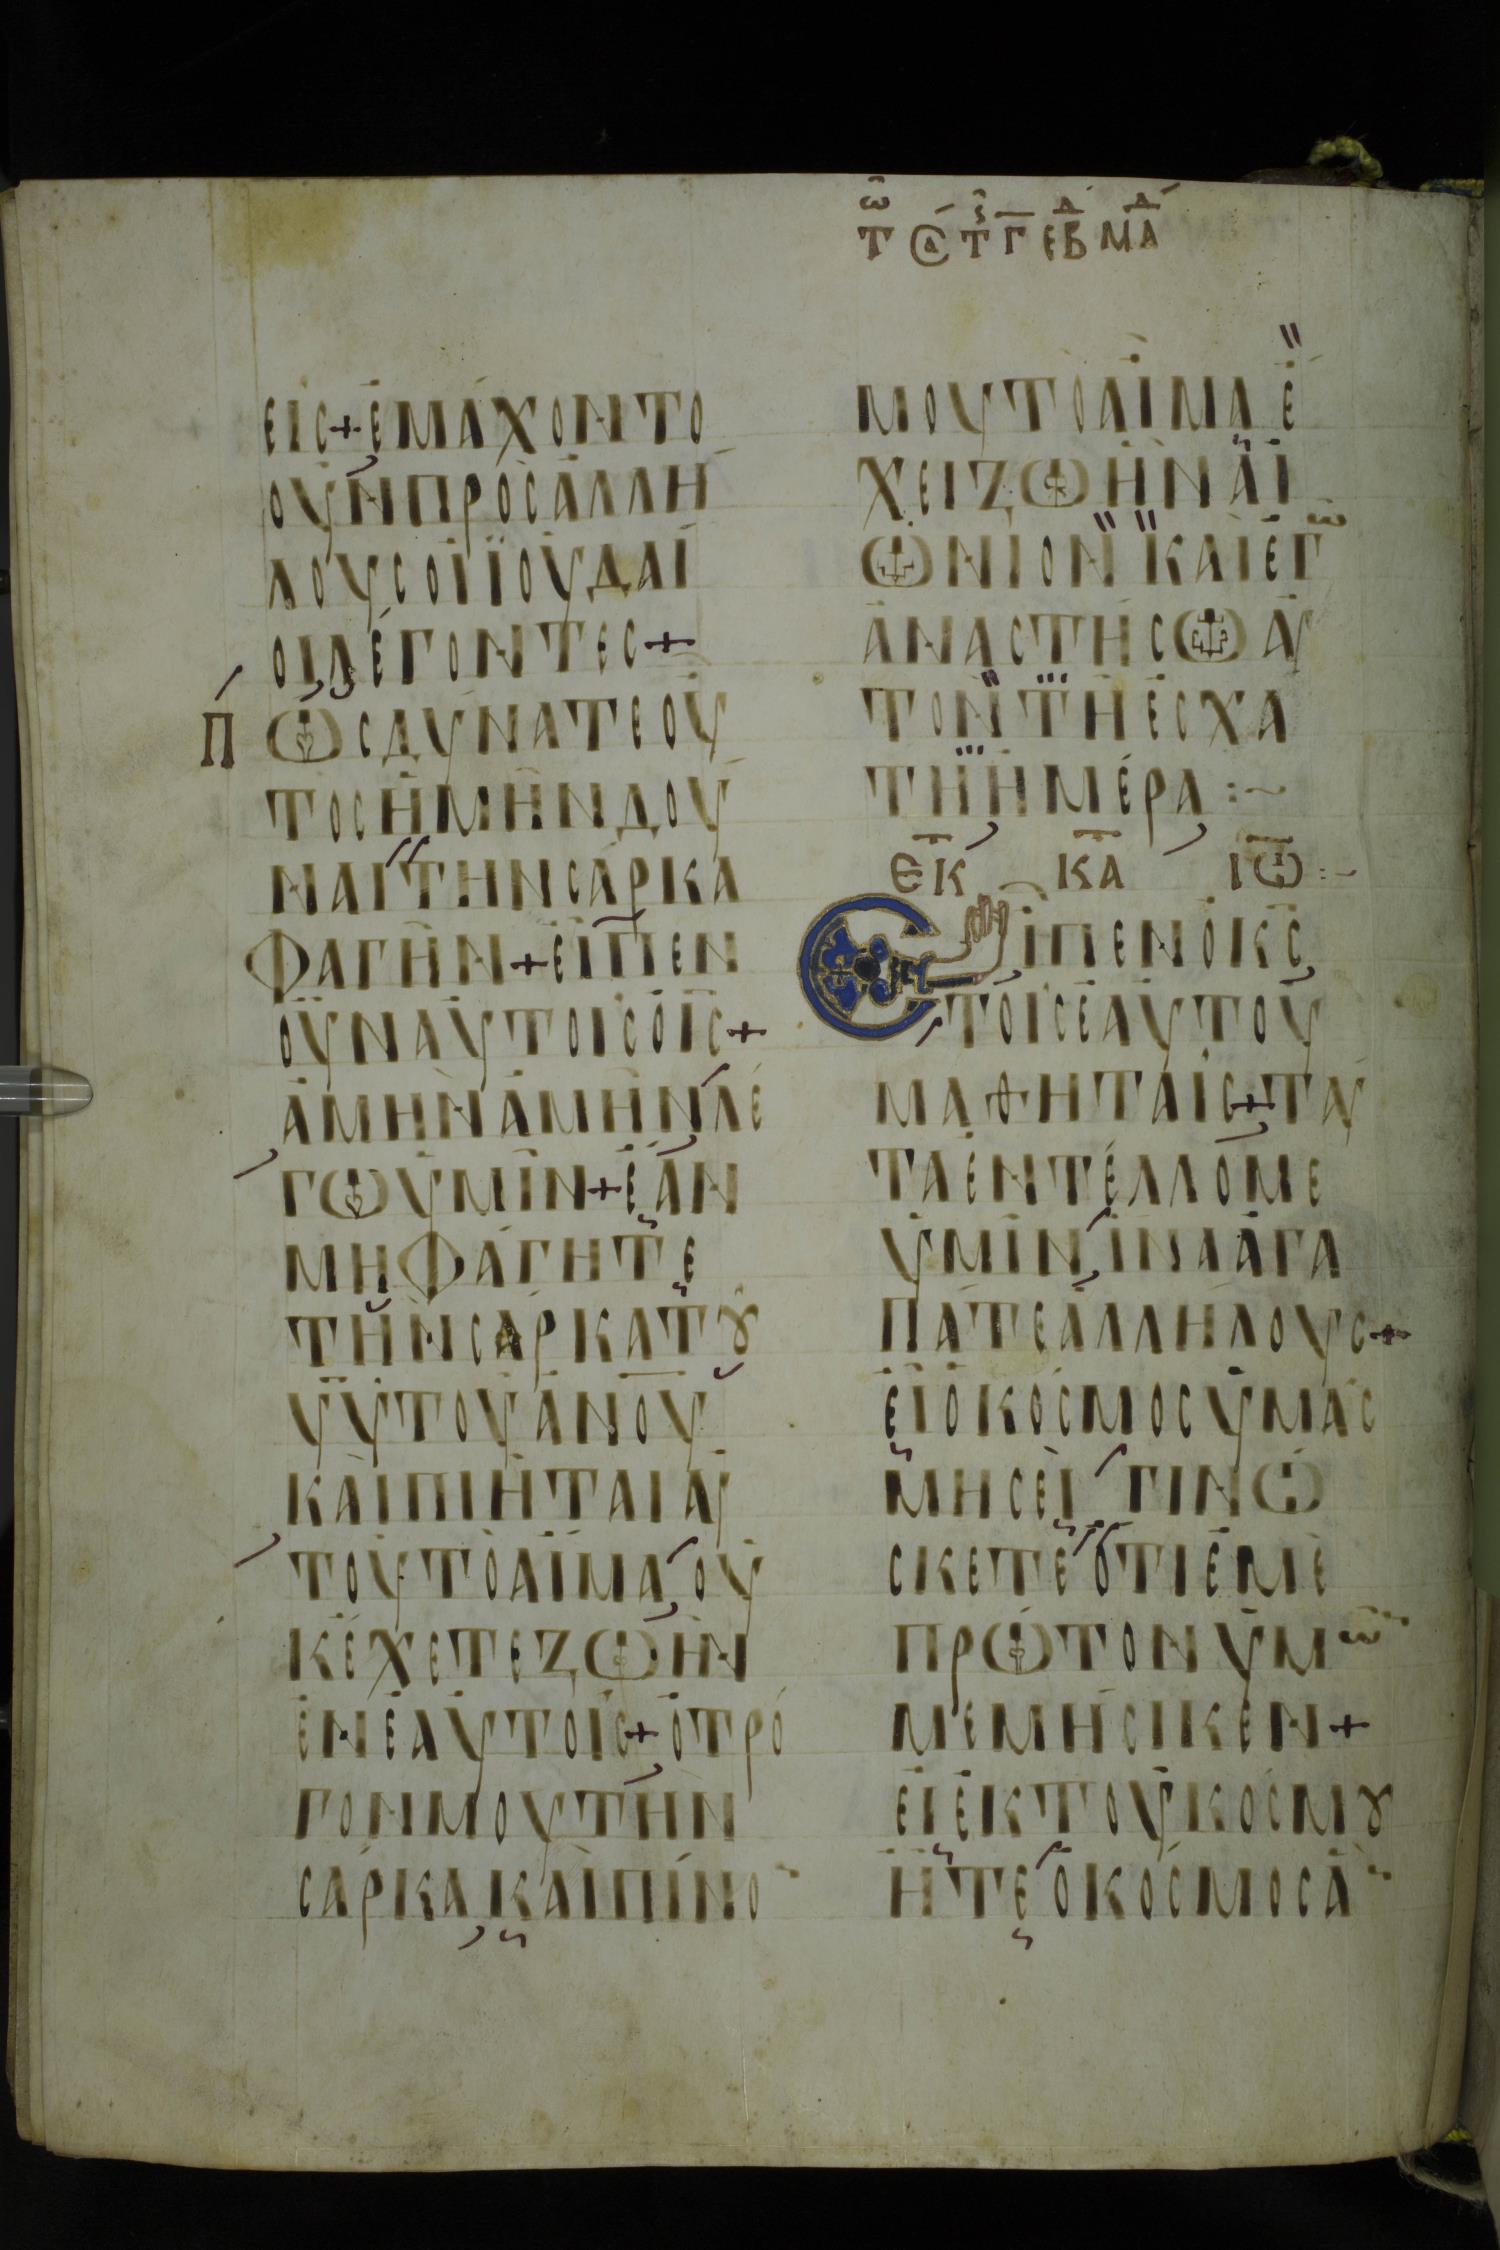 ΕΙC+ΕΜΑΧΟΝΤΟ
ΟΥΝΠΡΟCΑΛΛΗ
ΛΟΥCΟΙΪΟΥΔΑΙ
ΟΙΛΕΓΟΝΤΕC+
ΠΩCΔΥΝΑΤΕΟΥ
ΤΟCΗΜΗΝΔΟΥ
ΝΑΙΤΗΝCΑΡΚΑ
ΦΑΓΗΝ+ΕΙΠΕΝ
ΟΥΝΑΥΤΟΙCΟΙC+
ΑΜΗΝΑΜΗΝΛΕ
ΓΩΥΜΙΝ+ΕΑΝ
ΜΗΦΑΓΗΤΕ
ΤΗΝCΑΡΚΑΤȢ
ΥΥΤΟΥΑΝΟΥ
ΚΑΙΠΙΗΤΑΙΑΥ
ΤΟΥΤΟΑΙΜΑΟΥ
ΚΕΧΕΤΕΖΩΗΝ
ΕΝΕΑΥΤΟΙC+ΟΤΡΟ
ΓΟΝΜΟΥΤΗΝ
CΑΡΚΑΚΑΙΠΙΝΟ
ΜΟΥΤΟΑΙΜΑΕ
ΧΕΙΖΩΗΝΑΙ
ΩΝΙΟΝΚΑΙΕΓω
ΑΝΑCΤΗCΩΑΥ
ΤΟΝΤΗΕCΧΑ
ΤΗΗΜΕΡΑ:~
ΕΚ ΚΑ ΙΩ:~
ΕΙΠΕΝΟΚC
ΤΟΙCΕΑΥΤΟΥ
ΜΑΘΗΤΑΙC+ΤΑΥ
ΤΑΕΝΤΕΛΛΟΜΕ
ΥΜΙΝΙΝΑΑΓΑ
ΠΑΤΕΑΛΛΗΛΟΥC+
ΕΙΟΚΟCΜΟCΥΜΑC
ΜΗCΕΙΓΙΝΩ
CΚΕΤΕΟΤΙΕΜΕ
ΠΡΩΤΟΝΥΜω
ΜΕΜΗCΙΚΕΝ+
ΕΙΕΚΤΟΥΚΟCΜȢ
ΗΤΕΟΚΟCΜΟCΑ